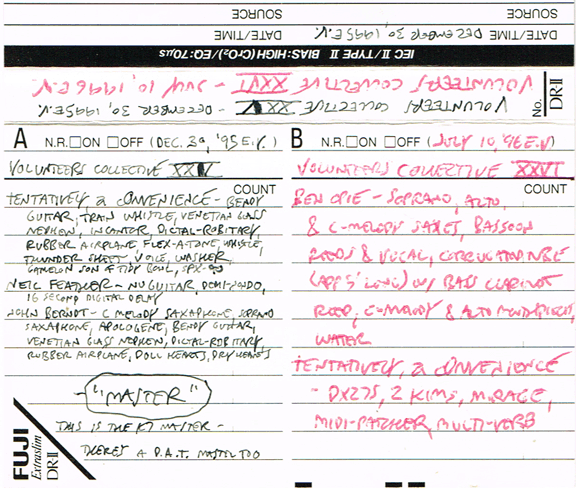 SOURCE SOURCE
DATE/TIME DECEMBER 30, 1995 E.V. DATE/TIME
IEC II/TYPE II BIAS:HIGH (CrO₂)/EQ:70μs
VOLUNTEERS COLLECTIVE XXVI - JULY 10, 1996 E.V.
VOLUNTEERS COLLECTIVE XXV - DECEMBER 30, 1995 E.V.
No. DR-II
A N.R. □ ON □ OFF (DEC. 30, '95 E.V.)
VOLUNTEERS COLLECTIVE XXV
COUNT
TENTATIVELY, A CONVENIENCE - BENDY
GUITAR, TRAIN WHISTLE, VENETIAN GLASS
NEPHEW, INCANTOR, DICTAL-ROBITARY,
RUBBER AIRPLANE, FLEX-A-TONE, WHISTLE,
THUNDER SHEET, VOICE, WASHER,
GAMELON SON OF TIDY BOWL, SPX-90
NEIL FEATHER - NUGUITAR, DEMI-JONDO,
16 SECOND DIGITAL DELAY
JOHN BERNDT - C MELODY SAXAPHONE, SOPRANO
SAXAPHONE, APOLOGENE, BENDY GUITAR,
VENETIAN GLASS NEPHEW, DICTAL-ROBITARY,
RUBBER AIRPLANE, DOLL HEARTS, DRY HEAVES
- "MASTER"
THIS IS THE K7 MASTER -
THERE'S A D.A.T. MASTER TOO
FUJI
Extraslim
DR-II
B N.R. □ ON □ OFF (JULY 10, '96 E.V.)
VOLUNTEERS COLLECTIVE XXVI
COUNT
BEN OPIE - SOPRANO, ALTO,
& C-MELODY SAXES, BASSOON
REEDS & VOCAL, CORRUGATED TUBE
(APP 5' LONG) W/ BASS CLARINET
REED, C-MELODY & ALTO MOUTHPIECES,
WATER
TENTATIVELY, A CONVENIENCE
- DX27S, 2 KIMS, MIRAGE,
MIDI-PATCHER, MULTI-VERB